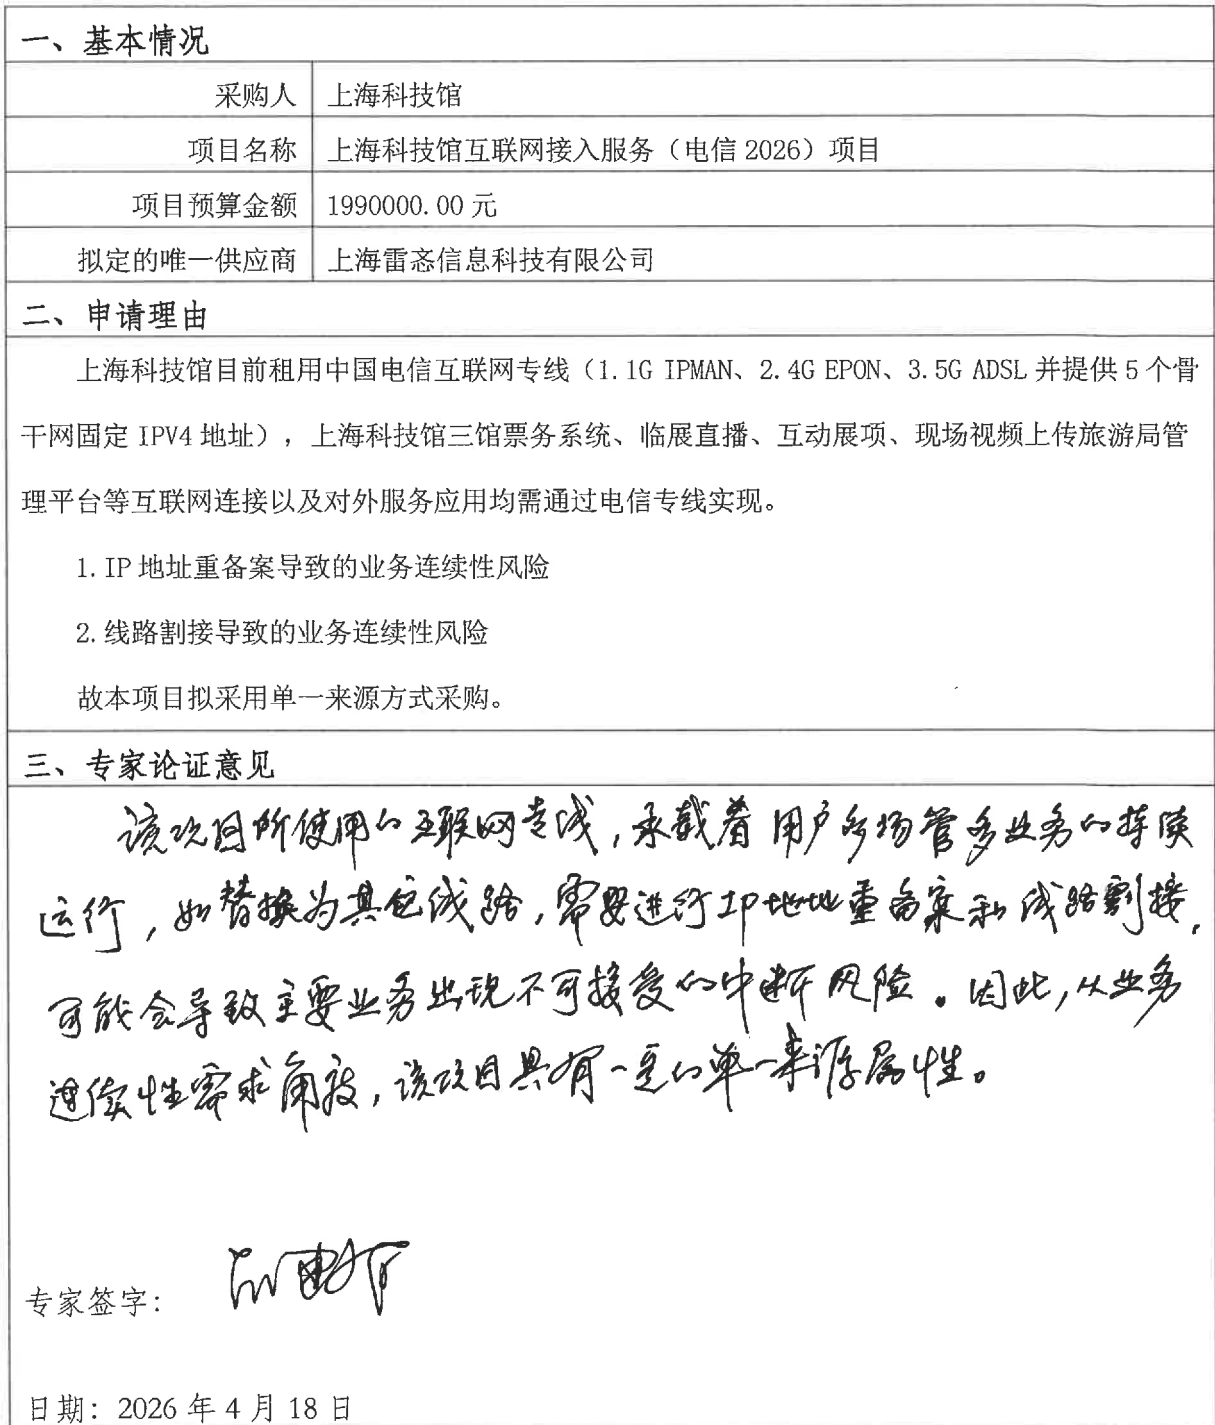 一、基本情况
采购人 上海科技馆
项目名称 上海科技馆互联网接入服务（电信 2026）项目
项目预算金额 1990000.00 元
拟定的唯一供应商 上海雷忞信息科技有限公司
二、申请理由
上海科技馆目前租用中国电信互联网专线（1.1G IPMAN、2.4G EPON、3.5G ADSL 并提供 5 个骨
干网固定 IPV4 地址），上海科技馆三馆票务系统、临展直播、互动展项、现场视频上传旅游局管
理平台等互联网连接以及对外服务应用均需通过电信专线实现。
1.IP 地址重备案导致的业务连续性风险
2.线路割接导致的业务连续性风险
故本项目拟采用单一来源方式采购。
三、专家论证意见
该项目所使用的互联网专线，承载着用户多场管多业务的持续
运行，如替换为其它线路，需要进行IP地址重备案和线路割接，
可能会导致主要业务出现不可接受的中断风险。因此，从业务
连续性需求角度，该项目具有一定的单一来源属性。
专家签字：
日期：2026 年 4 月 18 日